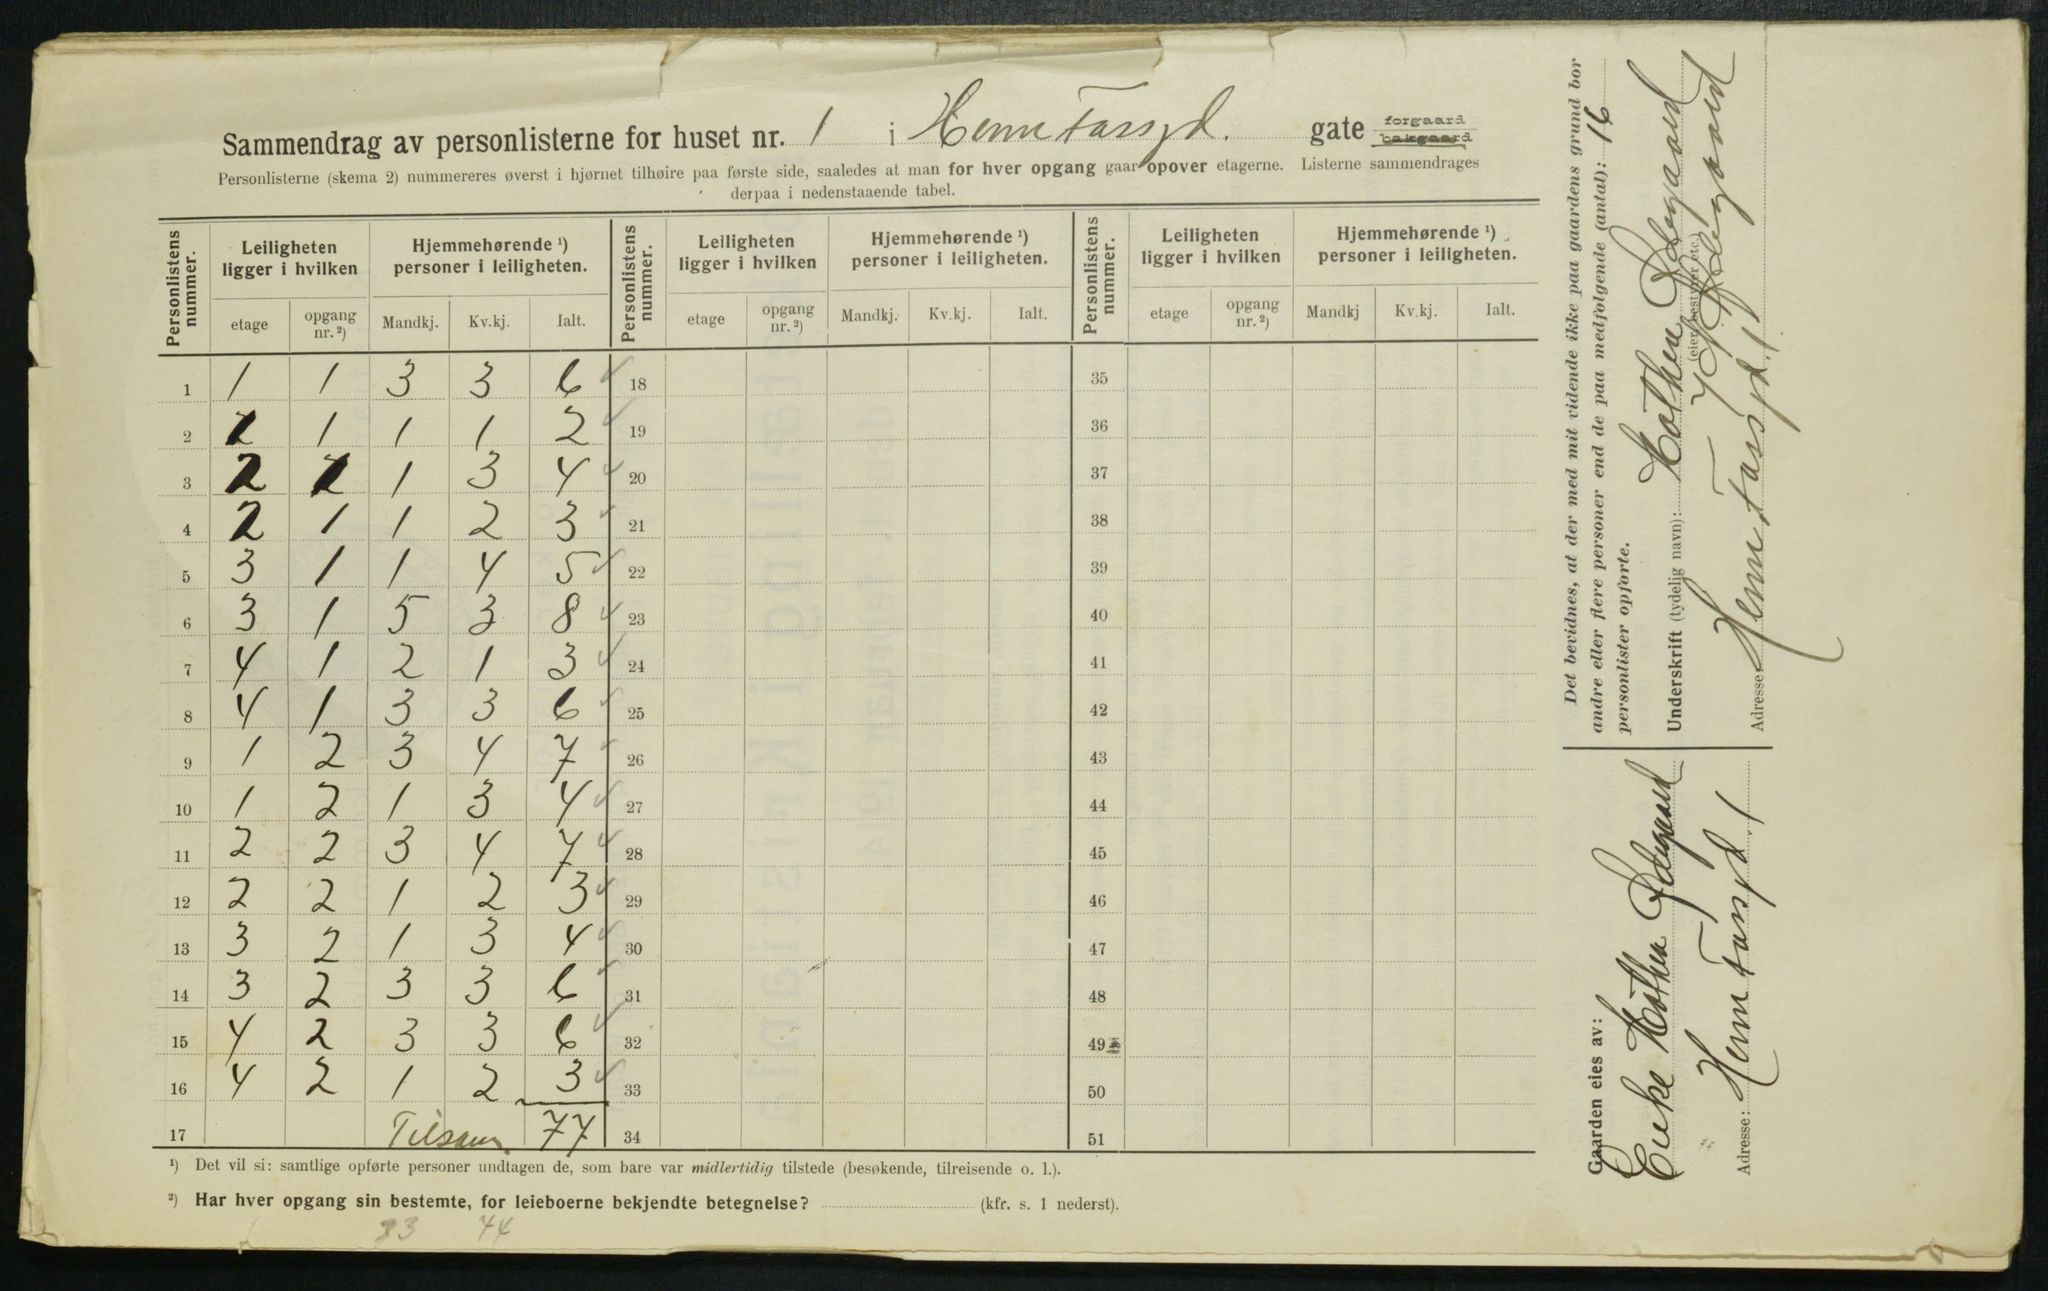 Sammendrag av personlisterne for huset nr. 1 i Herm Fossgd. gate forgaard bakgaard
Personlisterne (skema 2) nummereres øverst i hjørnet tilhøire paa første side, saaledes at man for hver opgang gaar opover etagerne. Listerne sammendrages
derpaa i nedenstaaende tabel.
Personlistens nummer. Leiligheten ligger i hvilken Hjemmehørende ¹) personer i leiligheten. Personlistens nummer. Leiligheten ligger i hvilken Hjemmehørende ¹) personer i leiligheten. Personlistens nummer. Leiligheten ligger i hvilken Hjemmehørende ¹) personer i leiligheten.
etage opgang nr. ²) Mandkj. Kv.kj. Ialt. etage opgang nr. ²) Mandkj. Kv.kj. Ialt. etage opgang nr. ²) Mandkj Kv.kj. Ialt.
1 1 1 3 3 6 ✓ 18 35
2 1 1 1 1 2 ✓ 19 36
3 2 1 1 3 4 ✓ 20 37
4 2 1 1 2 3 ✓ 21 38
5 3 1 1 4 5 ✓ 22 39
6 3 1 5 3 8 ✓ 23 40
7 4 1 2 1 3 ✓ 24 41
8 4 1 3 3 6 ✓ 25 42
9 1 2 3 4 7 ✓ 26 43
10 1 2 1 3 4 ✓ 27 44
11 2 2 3 4 7 ✓ 28 45
12 2 2 1 2 3 ✓ 29 46
13 3 2 1 3 4 ✓ 30 47
14 3 2 3 3 6 ✓ 31 48
15 4 2 3 3 6 ✓ 32 49
16 4 2 1 2 3 ✓ 33 50
17 Tilsam 77 34 51
¹) Det vil si: samtlige opførte personer undtagen de, som bare var midlertidig tilstede (besøkende, tilreisende o. l.).
²) Har hver opgang sin bestemte, for leieboerne bekjendte betegnelse? (kfr. s. 1 nederst).
33 44
Det bevidnes, at der med mit vidende ikke paa gaardens grund bor
andre eller flere personer end de paa medfølgende (antal): 16
personlister opførte.
Underskrift (tydelig navn):
(eier, bestyrer etc.)
Adresse: Herm Fossgd. 1
Gaarden eies av:
Enke
Adresse: Herm Fossgd 1